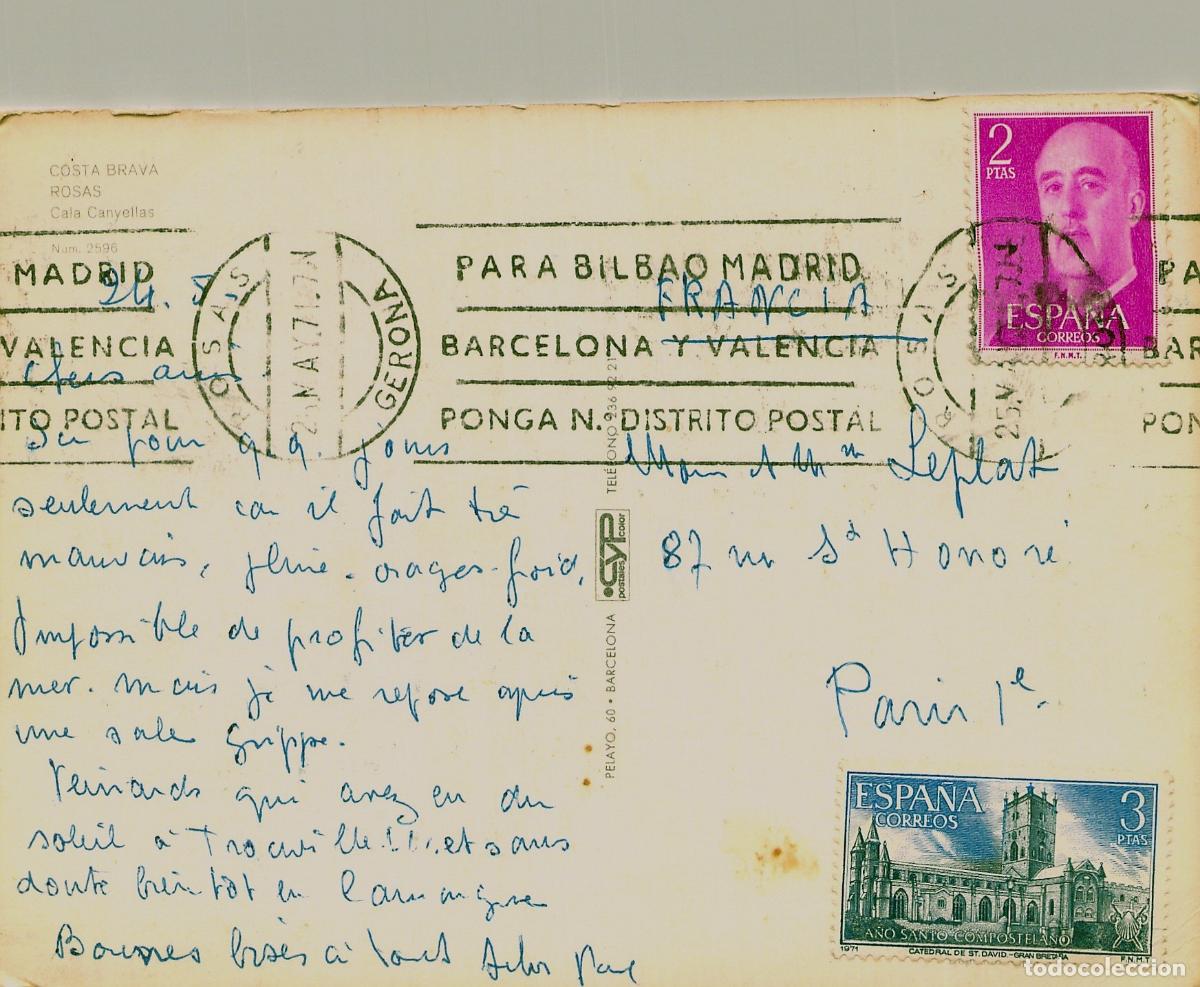 COSTA BRAVA
ROSAS
Cala Canyellas
Num. 2596
2 PTAS
ESPAÑA
CORREOS
F.N.M.T.
MADRID
VALENCIA
ITO POSTAL
ROSAS
25 MAY 71.7N
GERONA
PARA BILBAO MADRID
BARCELONA Y VALENCIA
PONGA N. DISTRITO POSTAL
ROSAS
25 M
PA
BAR
PON
24.5.
Chers amis
Ici pour q q. jours
seulement car il fait très
mauvais, pluie - orages - froid,
Impossible de profiter de la
mer. mais je me repose après
une sale grippe.
Veinards qui avez eu du
soleil à Trouville!!! et sans
doute bientôt en
Bonnes bises à tout
TELEFONO 236 92 21
CYP
postales color
PELAYO, 60 • BARCELONA
FRANCIA
Leplat
87 rue St Honoré
Paris 1e
ESPAÑA
CORREOS
3 PTAS
AÑO SANTO COMPOSTELANO
1971
CATEDRAL DE ST. DAVID - GRAN BRETAÑA
F.N.M.T.
todocoleccion